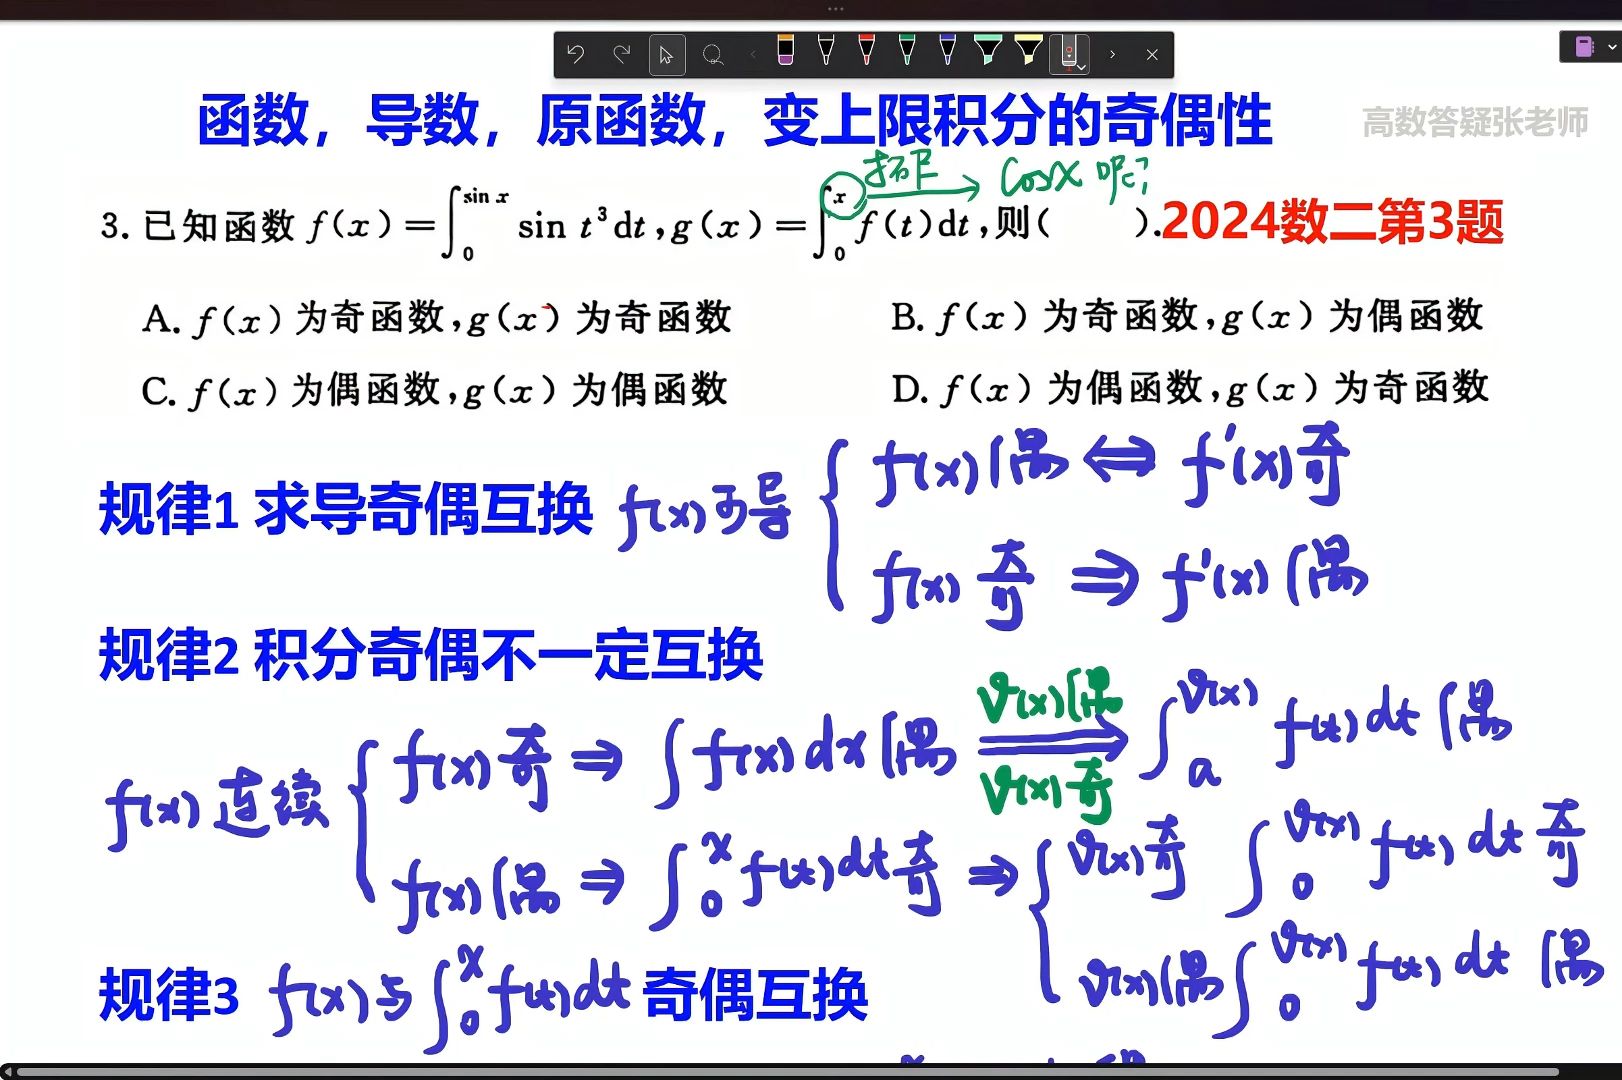 函数，导数，原函数，变上限积分的奇偶性
高数答疑张老师
拓展 → cosx 呢?
3. 已知函数 f(x)=∫₀^{sin x} sin t³dt,g(x)=∫₀^x f(t)dt,则(　　).2024数二第3题
A. f(x)为奇函数,g(x)为奇函数
B. f(x)为奇函数,g(x)为偶函数
C. f(x)为偶函数,g(x)为偶函数
D. f(x)为偶函数,g(x)为奇函数
规律1 求导奇偶互换 f(x)可导
f(x)偶 ⇔ f'(x)奇
f(x)奇 ⇒ f'(x)偶
规律2 积分奇偶不一定互换
f(x)连续
f(x)奇 ⇒ ∫f(x)dx偶 ⇒ ∫ₐ^{φ(x)} f(t)dt偶
φ(x)偶
φ(x)奇
f(x)偶 ⇒ ∫₀^x f(t)dt奇 ⇒ φ(x)奇 ∫₀^{φ(x)} f(t)dt奇
φ(x)偶 ∫₀^{φ(x)} f(t)dt 偶
规律3 f(x)与∫₀^x f(t)dt 奇偶互换